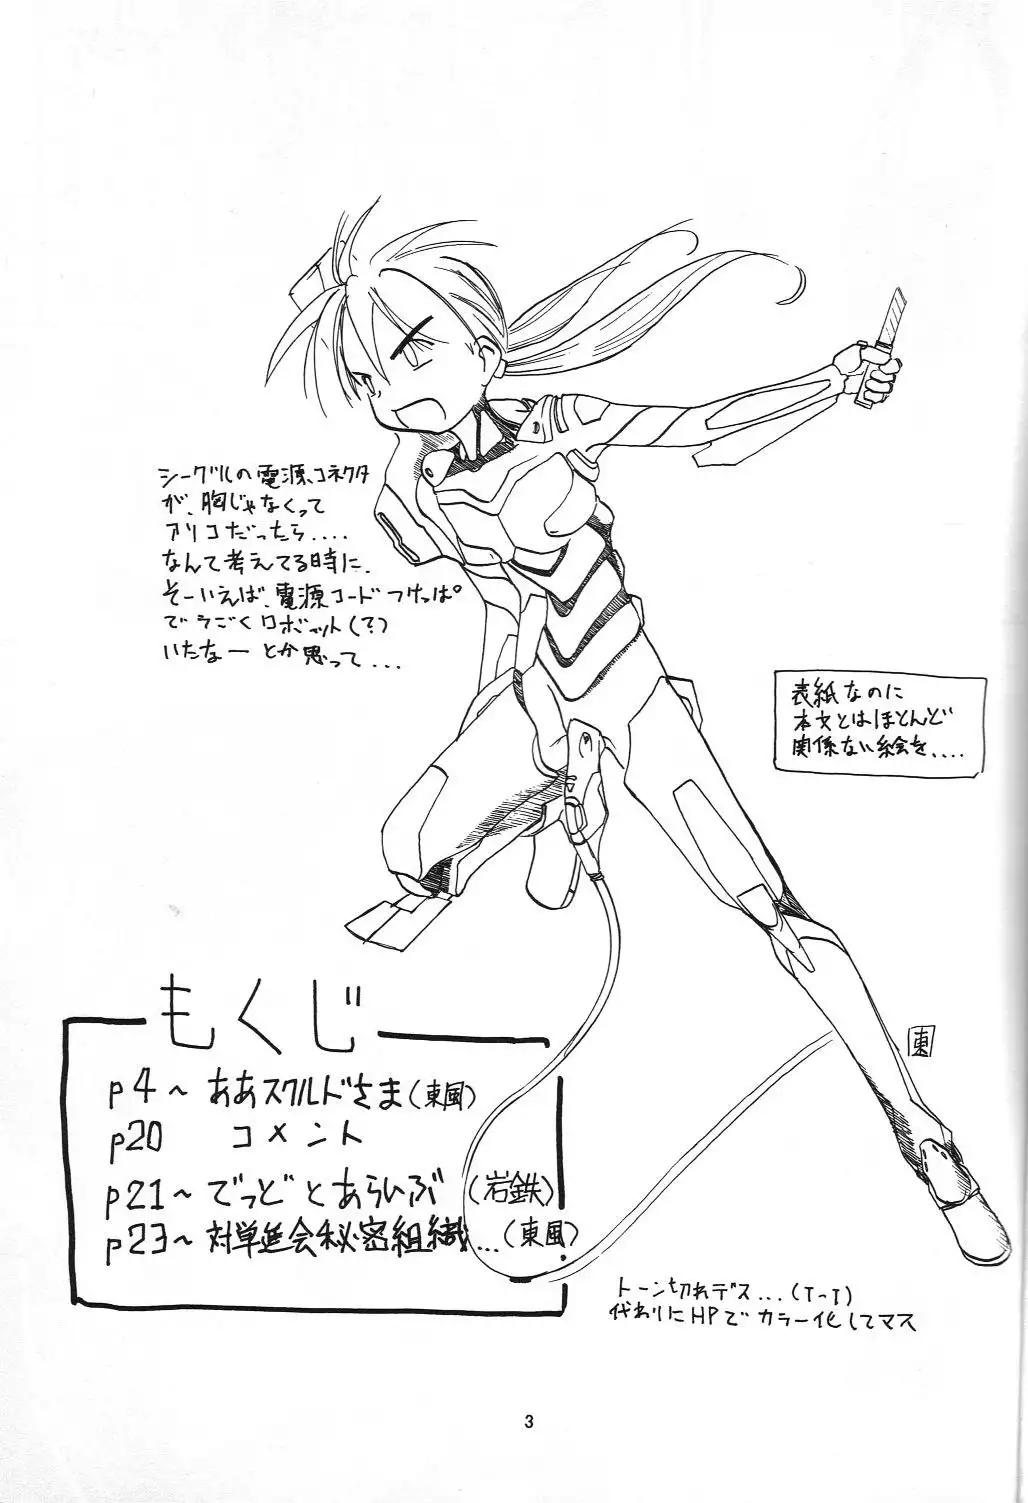 シーグルの電源コネクタ
が、胸じゃなくって
アソコだったら....
なんて考えてる時に、
そーいえば、電源コードつけっぱ
でうごくロボット(?)
いたなー とか思って...
表紙なのに
本文とはほとんど
関係ない絵を....
東
もくじ
p4～ ああスクルドさま(東風)
p20 コメント
p21～ でっどとあらいぶ (岩鉄)
p23～ 対単進会秘密組織...(東風)
トーン切れデス...(T-T)
代わりにHPでカラー化してマス
3